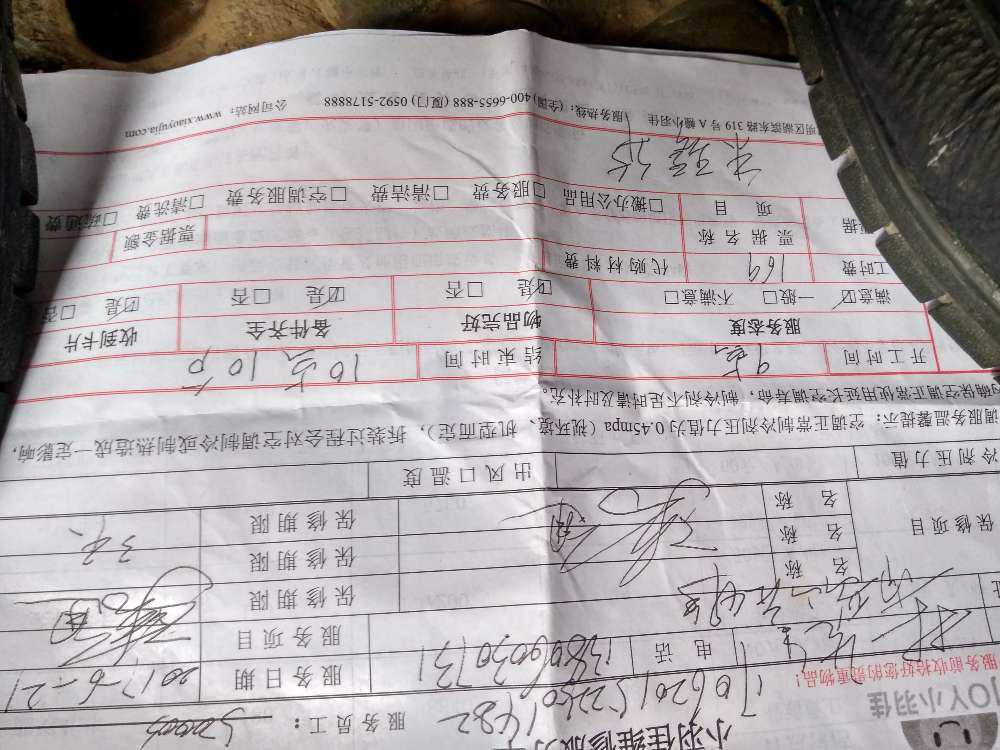 JOY小羽佳
小羽佳维修服务
服务前收拾好您的贵重物品!
1706201522501482
服务员工:
电 话 13806030731
服务日期 2017-6-21
服务项目
保修项目
名 称
保修期限
名 称
保修期限
名 称
保修期限
冷剂压力值
出风口温度
调服务温馨提示: 空调正常制冷剂压力值为0.45mpa (视环境、机型而定), 拆装过程会对空调制冷或制热造成一定影响,
确保空调正常使用延长空调寿命, 制冷剂不足时请及时补充。
开工时间 9点
结束时间 10点10分
服务态度
物品完好
备件齐全
收到卡片
满意☑ 一般□ 不满意□
☑是 □否
☑是 □否
☑是 □否
工时费 169
代购材料费
票据名称
票据金额
据
项 目
□搬办公用品 □服务费 □清洁费 □空调服务费 □清洗费 □疏通费
明区湖滨东路 319 号 A 幢小羽佳 服务热线: (全国) 400-6655-888 (厦门) 0592-5178888 公司网站: www.xiaoyujia.com